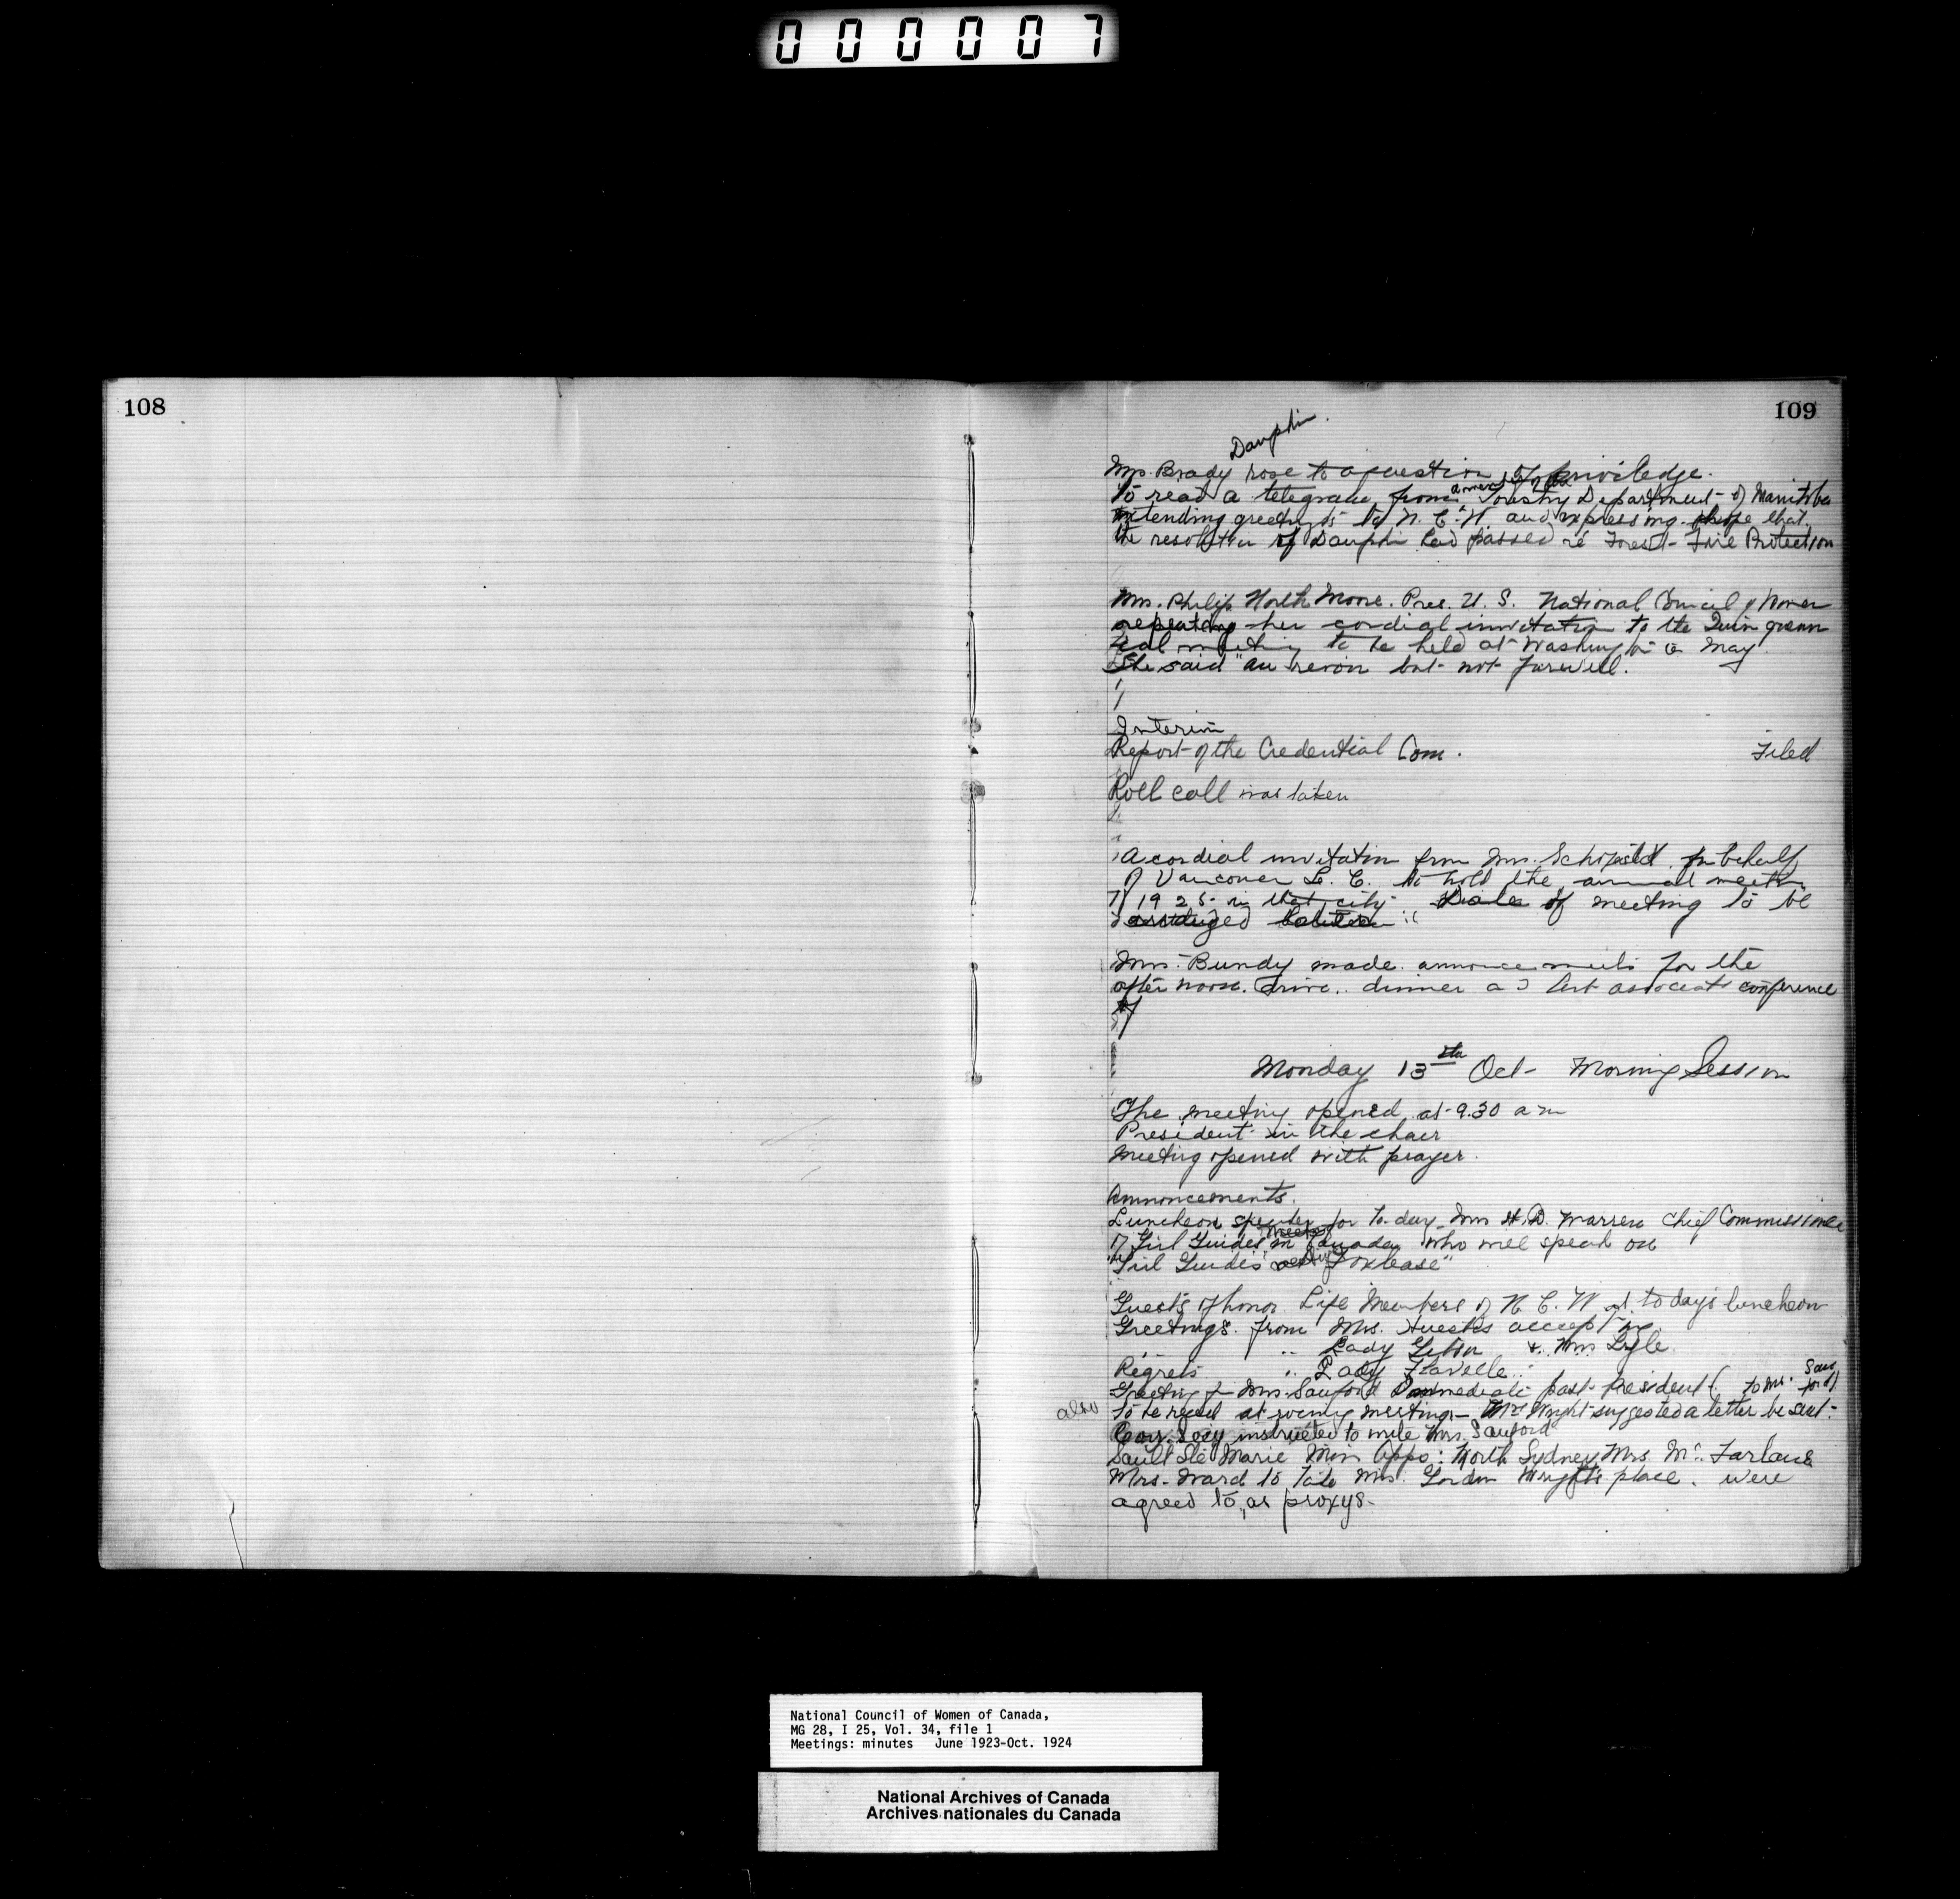 0 0 0 0 0 7
108
109
Dauphin.
Mrs. Brady rose to a question of priviledge.
To read a telegram from Forestry Department of Manitoba
extending greetings to N. C. W. and expressing hope that
the resolution of Dauphin had passed re Forest Fire Protection
Mrs. Philip North Moore. Pres. U. S. National Council of Women
repeating her cordial invitation to the Quinquenn
ial meeting to be held at Washington in May
She said "au revoir but not farewell.
Interim
Report of the Credential Com. Filed
Roll call was taken
A cordial invitation from Mrs. Schofield on behalf
of Vancouver L. C. to hold the annual meeting
of 1925 in that city. Date of meeting to be
arranged
Mrs. Bundy made announcements for the
after noon. Drive.. dinner and conference
Monday 13th Oct- Morning Session
The meeting opened at 9.30 a m
President in the chair
Meeting opened with prayer.
Announcements.
Luncheon speaker for to-day Mrs H. D. Warren Chief Commissioner
of Girl Guides in Canada who will speak on
"Girl Guides Foxlease"
Guests of honor Life Members of N. C. W at to days luncheon
Greetings from Mrs. Huestis accepting
.. Lady Gibson & Mrs Lyle.
Regrets .. Lady Flavelle
Greeting Mrs. Sanford Immediate past President ( to Mrs. Sanford)
also
To be read at evening meeting - Mrs Wright suggested a letter be sent.
Corr. Secy instructed to write Mrs. Sanford
Sault Ste Marie Miss Oppo: North Sydney Mrs. McFarlane
Mrs. Ward to take Mrs. Gordon Wright's place. were
agreed to, as proxys-
National Council of Women of Canada,
MG 28, I 25, Vol. 34, file 1
Meetings: minutes June 1923-Oct. 1924
National Archives of Canada
Archives nationales du Canada